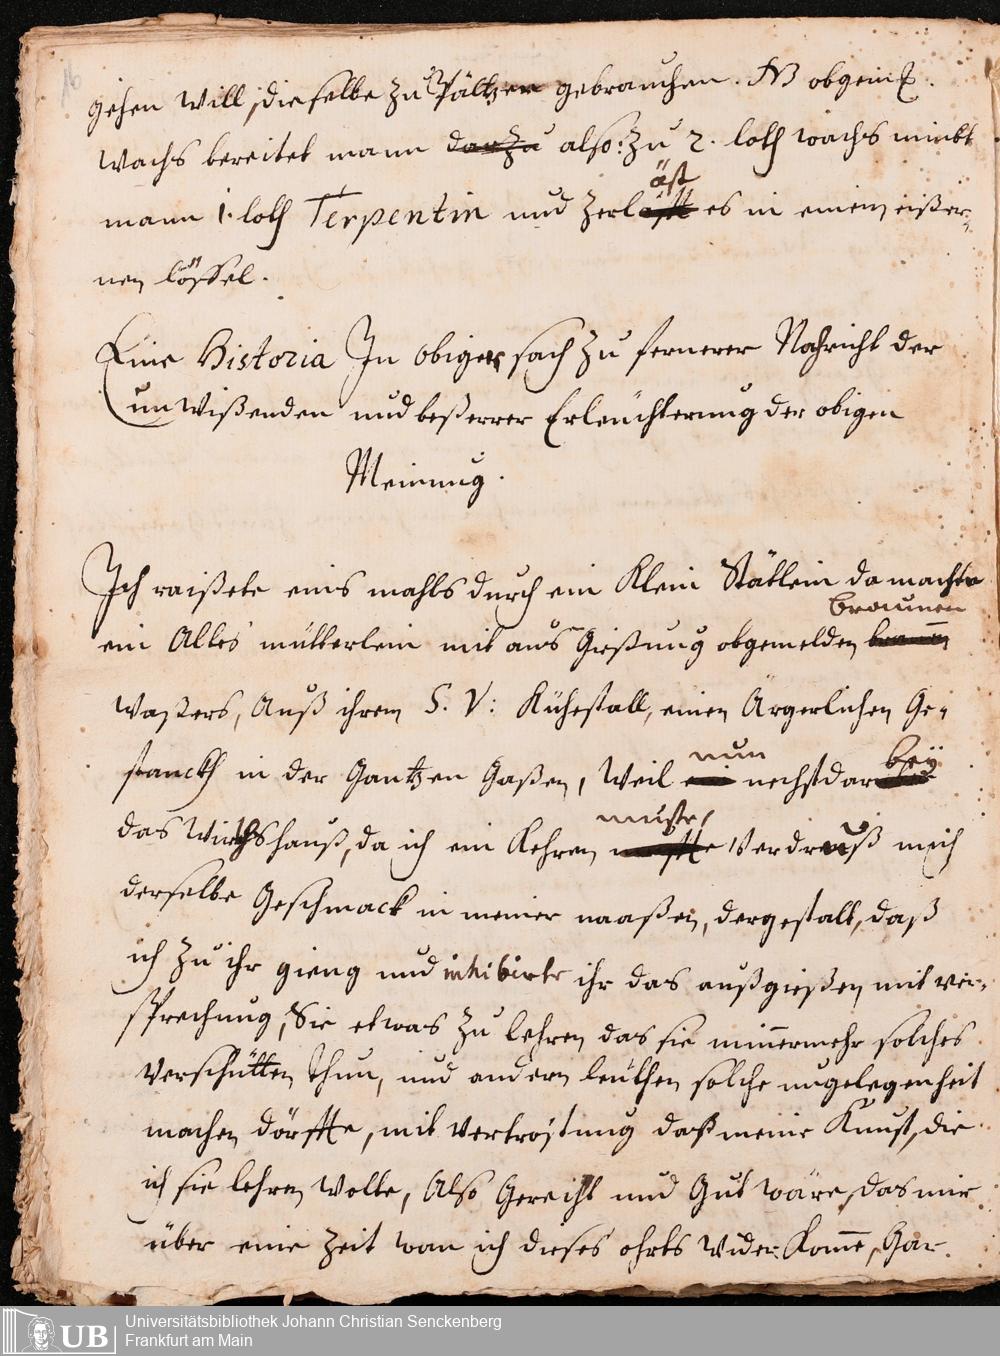 gehen will, dieselbe zu Pältzen gebrauchen. NB obgem.
Wachs bereitet mann darzu also: zu 2. loth wachs nimbt
äst
mann 1. loth Terpentin und Zerläst es in einem eißer-
nen löffel.
Eine Historia In obiger sach zu fernerer Nachricht der
unwißenden und beßerrer Erleüchterung der obigen
Meinung.
Ich raißete eins mahls durch ein Klein Stättlein da machte
braunen
ein Altes mütterlein mit aus Gießung obgemelden braunen
waßers, Auß ihrem S. V: Kühestall, einen Ärgerlichen Ge-
stanckh in der Gantzen Gaßen, Weil nun nechst dar bey
das Wirthshauß, da ich ein Kehren muste, Verdreuß mich
derselbe Geschmack in meiner naaßen, dergestalt, daß
ich zu ihr gieng und inhibirte ihr das außgießen mit ver-
sprechung, Sie etwas zu lehren das sie nimermehr solches
Verschütten thun, und andern leüthen solche ungelegenheit
machen dörffte, mit Vertröstung daß meine Kunst, die
ich sie lehren wolte, Also Gerecht und Gut wäre, das mir
über eine Zeit wan ich dieses ohrts wider Kome, Gar.
UB
Universitätsbibliothek Johann Christian Senckenberg
Frankfurt am Main